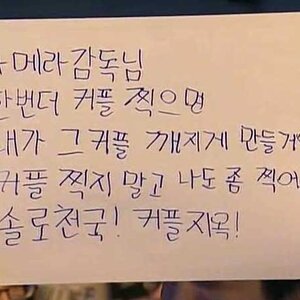 메라감독님
한번더 커플 찍으면
내가 그커플 깨지게 만들거
커플 찍지 말고 나도 좀 찍어
솔로천국! 커플지옥!